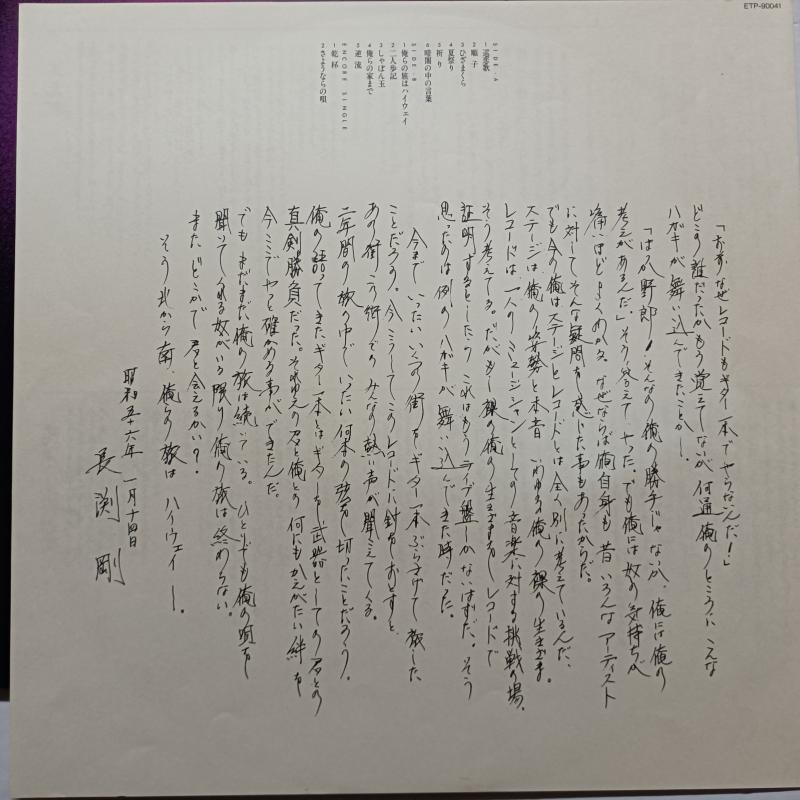 ETP-90041
SIDE・A
1 巡恋歌
2 囃子
3 ひざまくら
4 夏祭り
5 祈り
6 暗闇の中の言葉
SIDE・B
1 俺らの旅はハイウェイ
2 二人歩記
3 しゃぼん玉
4 俺らの家まで
5 逆流
ENCORE SINGLE
1 乾杯
2 さようならの唄
「おまえ なぜレコードもギター一本でやらないんだ!」
どこの誰だったかもう覚えてしないが、何通俺のところに こんな
ハガキが舞い込んできたことか―。
「ばか野郎! そんなの俺の勝手じゃないか、俺には俺の
考えがあるんだ」そう答えてやった。でも俺には奴の気持ちが
痛いほどよくわかる。なぜならば俺自身も昔いろんなアーティスト
に対してそんな疑問を感じた事もあったからだ。
でも今の俺はステージとレコードとは全く別に考えているんだ、
ステージは俺の姿勢と本音 いわゆる俺の裸の生きざま。
レコードは、一人のミュージシャンとしての音楽に対する挑戦の場、
そう考えてる。だがもし裸の俺の生きざまをレコードで
証明するとしたら これはもうライブ盤しかないはずだ。そう
思ったのは例のハガキが舞い込んできた時だった。
今まで いったいいくつの街をギター一本ぶらさげて旅した
ことだろう。今こうしてこのレコードに針をおとすと、
あの街この街でのみんなの熱い声が聞こえてくる。
二年間の旅の中で いったい何本の弦を切ったことだろう。
俺の語ってきたギター一本とはギターを武器としての君との
真剣勝負だった。それゆえの君と俺との何にもかえがたい絆を
今ここでやっと確かめる事ができたんだ。
でも まだまだ俺の旅は続いている。ひとりでも俺の唄を
聞いてくれる奴がいる限り俺の旅は終わらない。
また どこかで 君と会えるかい?
そう 北から南、俺らの旅は ハイウェイ―。
昭和五十六年 一月十四日
長渕 剛